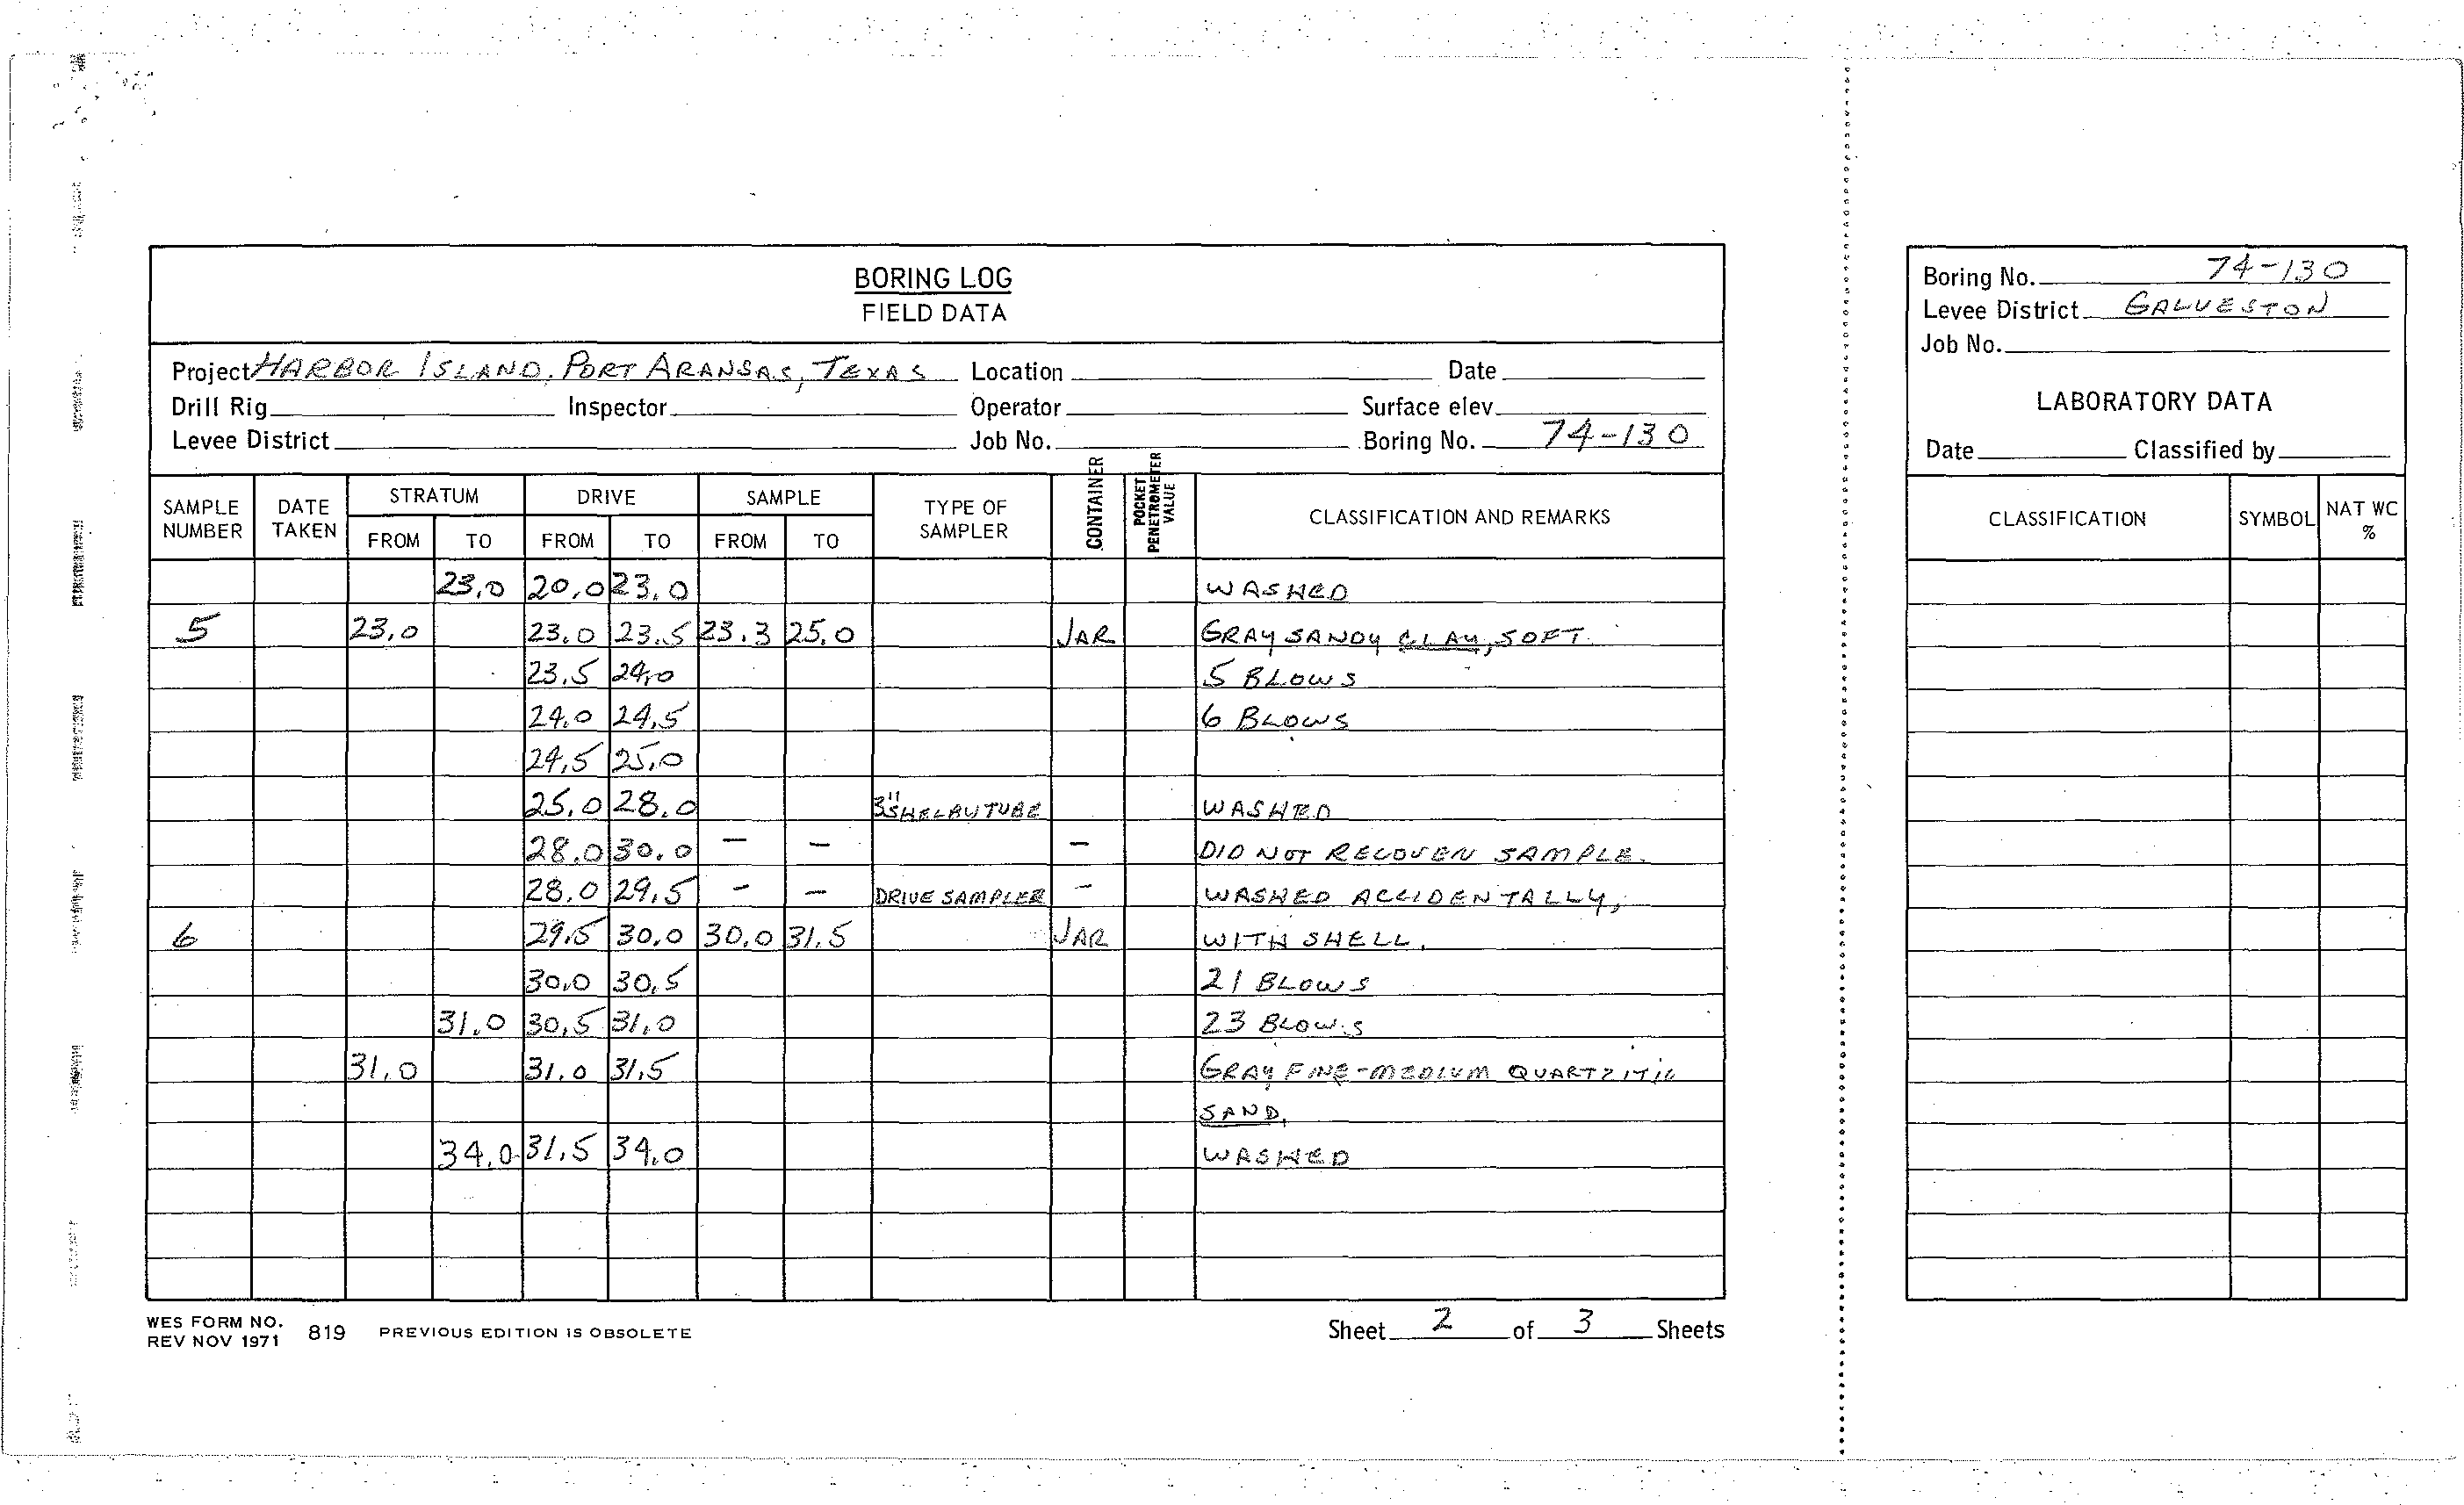 BORING LOG
FIELD DATA
Project HARBOR ISLAND, PORT ARANSAS, TEXAS Location Date
Drill Rig Inspector Operator Surface elev.
Levee District Job No. Boring No. 74-130
SAMPLE NUMBER DATE TAKEN STRATUM DRIVE SAMPLE TYPE OF SAMPLER CONTAINER POCKET PENETROMETER VALUE CLASSIFICATION AND REMARKS
FROM TO FROM TO FROM TO
23.0 20.0 23.0 WASHED
5 23.0 23.0 23.5 23.3 25.0 JAR GRAY SANDY CLAY, SOFT.
23.5 24.0 5 BLOWS
24.0 24.5 6 BLOWS
24.5 25.0
25.0 28.0 3" SHELBY TUBE WASHED
28.0 30.0 - - - DID NOT RECOVER SAMPLE.
28.0 29.5 - - DRIVE SAMPLER - WASHED ACCIDENTALLY,
6 29.5 30.0 30.0 31.5 JAR WITH SHELL.
30.0 30.5 21 BLOWS
31.0 30.5 31.0 23 BLOWS
31.0 31.0 31.5 GRAY FINE-MEDIUM QUARTZITIC
SAND.
34.0 31.5 34.0 WASHED
WES FORM NO. 819 PREVIOUS EDITION IS OBSOLETE
REV NOV 1971
Sheet 2 of 3 Sheets
Boring No. 74-130
Levee District GALVESTON
Job No.
LABORATORY DATA
Date Classified by
CLASSIFICATION SYMBOL NAT WC %